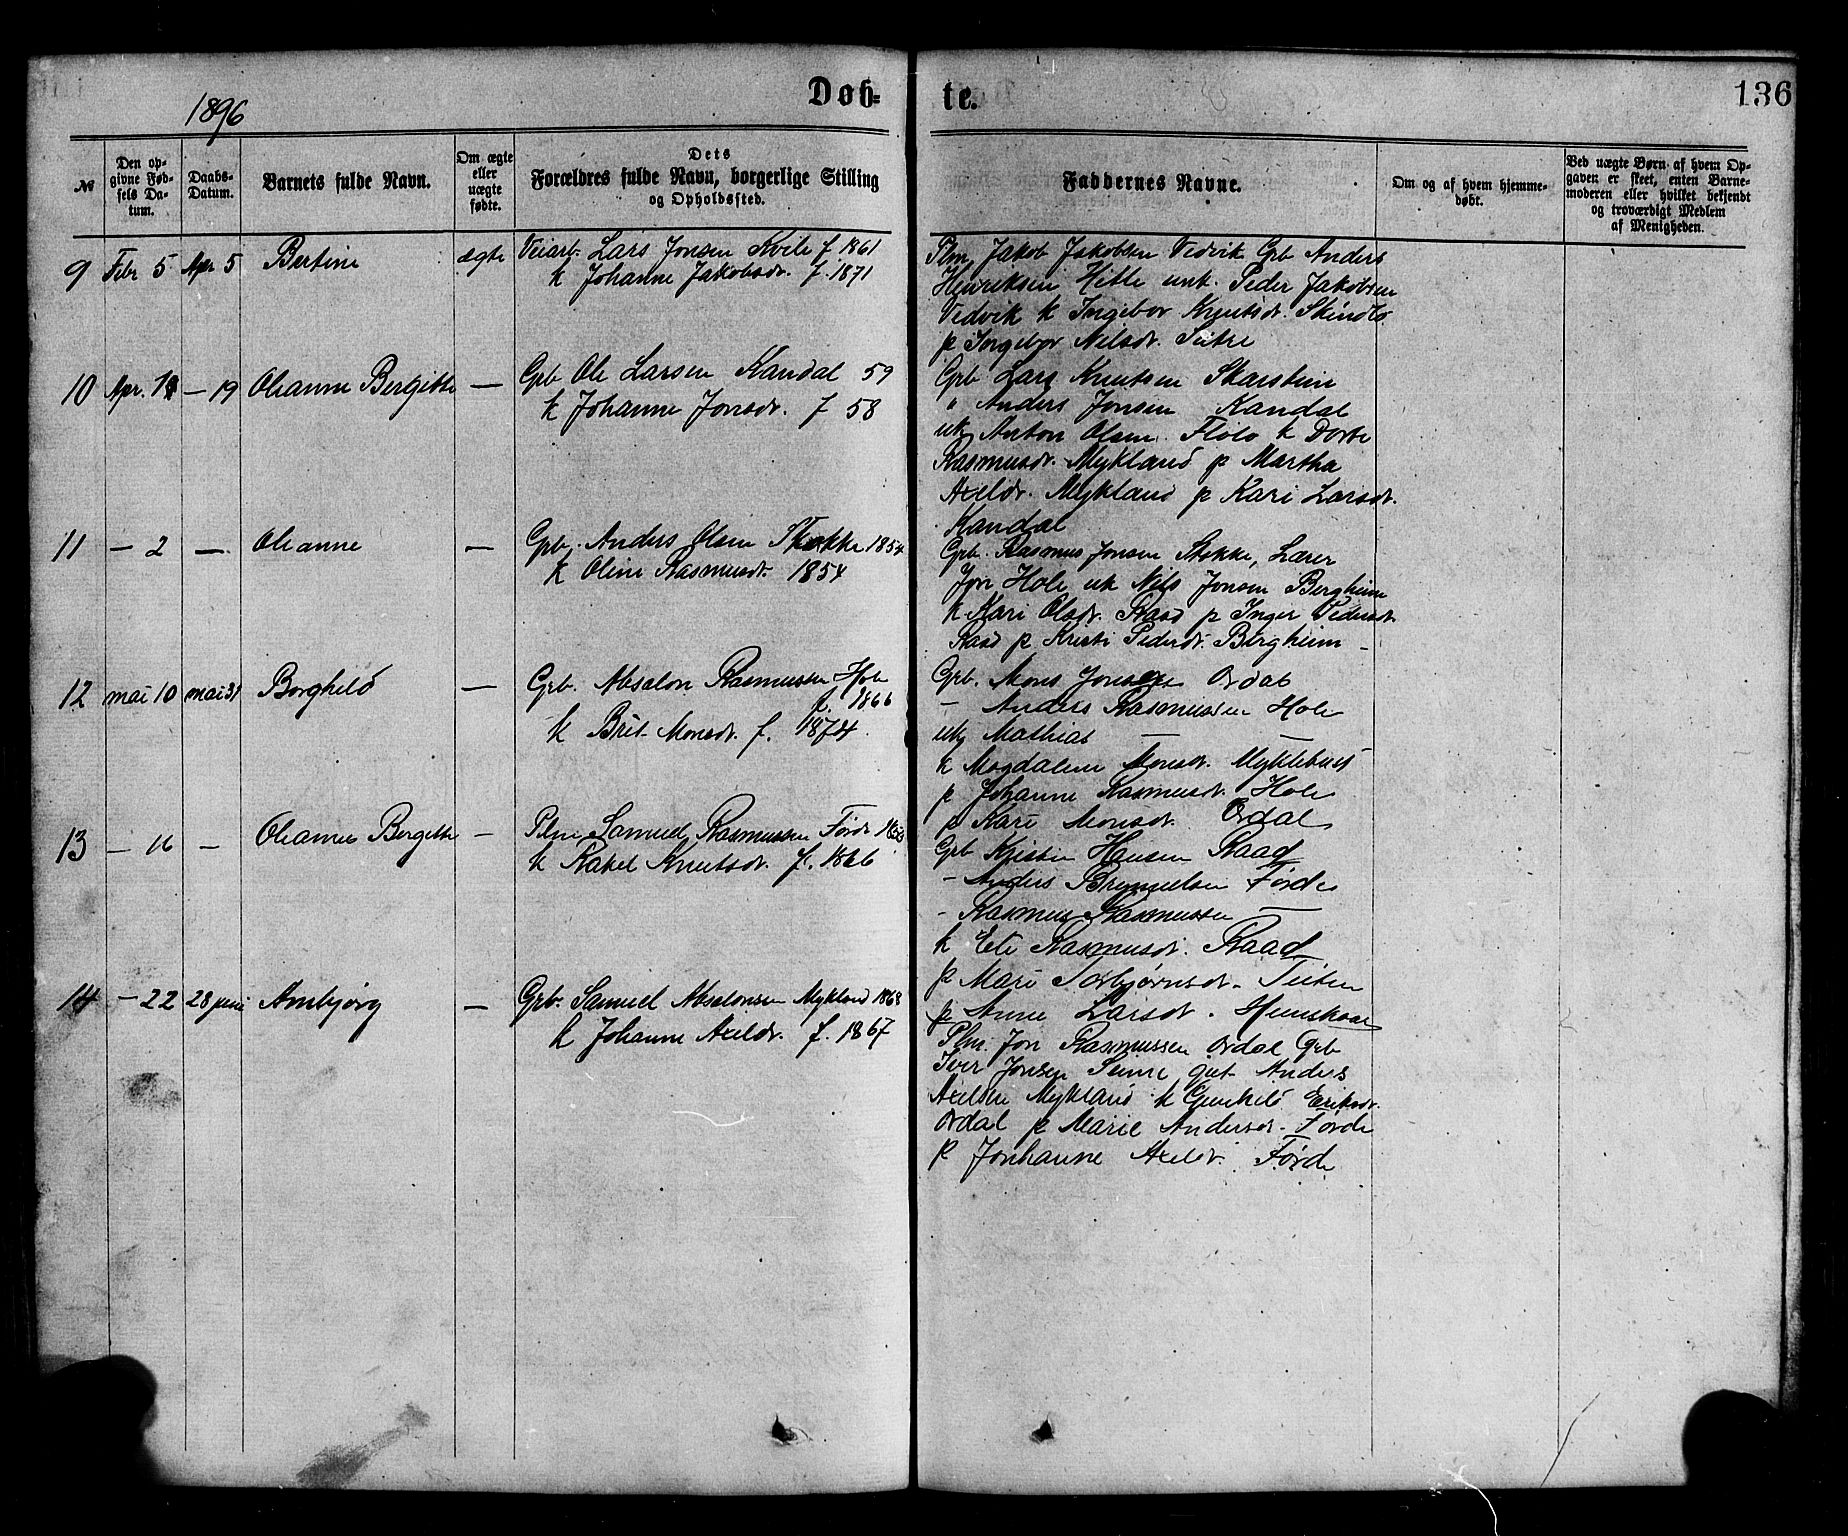 1896
Døb-
te.
136
№
Den op-
givne Fød-
sels Da-
tum.
Daabs-
Datum.
Barnets fulde Navn.
Om ægte
eller
uægte
fødte.
Dets
Forældres fulde Navn, borgerlige Stilling
og Opholdssted.
Faddernes Navne.
Om og af hvem hjemme-
døbt.
Ved uægte Børn af hvem Op-
gaven er skeet, enten Barne-
moderen eller hvilket bekjendt
og troværdigt Medlem
af Menigheden.
9 Febr 5 Apr 5 Bertine ægte Veiarb. Lars Jonsen Kvile f 1861
k Johanne Jakobsdr. f. 1871
Plm. Jakob Jakobsen Vedvik Grb Anders
Henriksen Hitle unk. Peder Jakobsen
Vedvik k Ingebor Knutsdr.
p Ingebor Nilsdr. Sætre
10 Apr. — 19 Oleanne Bergitte — Grb Ole Larsen Kandal 59
k Johanne Jonsdr. f 58
Grb Lars Knutsen Skarstein
" Anders Jonsen Kandal
uk Anton Olsen Flølo k Dorte
Rasmusdr. Mykland p Martha
Axeldr. Mykland p Kari Larsdr.
Kandal
11 — 2 — Oleanne — Grb. Anders Olsen Stokke 1854
k Oline Rasmusdr. 1854
Grb. Rasmus Jonsen Stokke, Lærer
Jon Hole uk Nils Jonsen Bergheim
k Kari Olsdr. Raad p Inger Pedersdr.
Raad p Kristi Pedersdr. Bergheim
12 mai 10 mai 31 Borghild — Grb. Absalon Rasmussen Hole
f. 1866
k Brit Monsdr. f. 1874.
Grb. Mons Jonsen Ordal
— Anders Rasmussen Hole
uk Mathias — —
k Magdalene Monsdr. Myklebust
p Johanne Rasmusdr. Hole
p Kari Monsdr. Ordal
13 — 16 — Oleanne Bergitte — Plm Samuel Rasmussen Førde
k Rakel Knutsdr. f. 1866
Grb Kristen Hansen Raad
— Anders Brynielsen Førde
- Rasmus Rasmussen —
k Eli Rasmusdr. Raad
p Mari Torbjørnsdr.
p Anne Larsdr.
14 — 22 28 juni Ambjørg — Grb. Samuel Absalonsen Mykland 1868
k Johanne Axeldr. f. 1867
Plm. Jon Rasmussen Ordal Grb
Iver Jonsen gut Anders
Axelsen Mykland k Gunhild Eriksdr.
Ordal p Marie Andersdr. Førde
p Jonhanne Axeldr. Førde